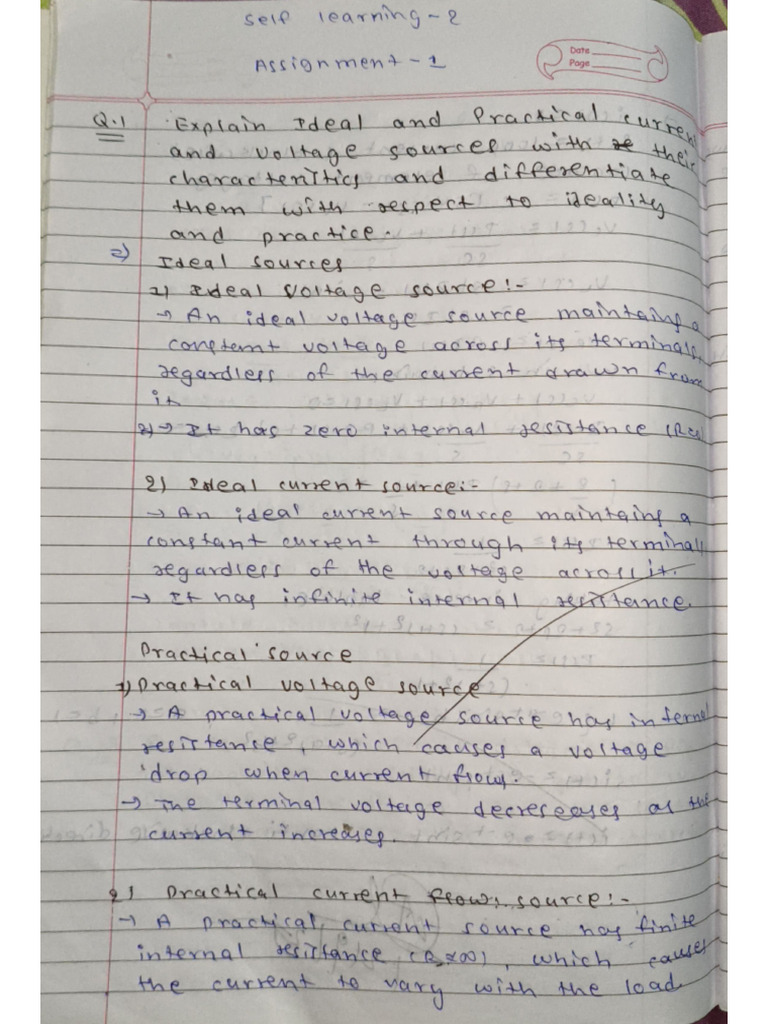 Self learning - 2
Assignment - 1
Date
Page
Q.1 Explain Ideal and Practical current
and voltage sources with their
characteristics and differentiate
them with respect to ideality
and practice.
=) Ideal sources
1) Ideal Voltage source :-
→ An ideal voltage source maintains a
constemt voltage across its terminals,
regardless of the current drawn from
it
→ It has zero internal resistance
2) Ideal current source :-
→ An ideal current source maintains a
constant current through its terminals
regardless of the voltage across it.
→ It has infinite internal resistance.
Practical source
1) Practical voltage source
→ A practical voltage source has internal
resistance, which causes a voltage
drop when current flows.
→ The terminal voltage decreseases as the
current increases.
2) Practical current flows source :-
→ A practical current source has finite
internal resistance (R≠∞), which causes
the current to vary with the load.